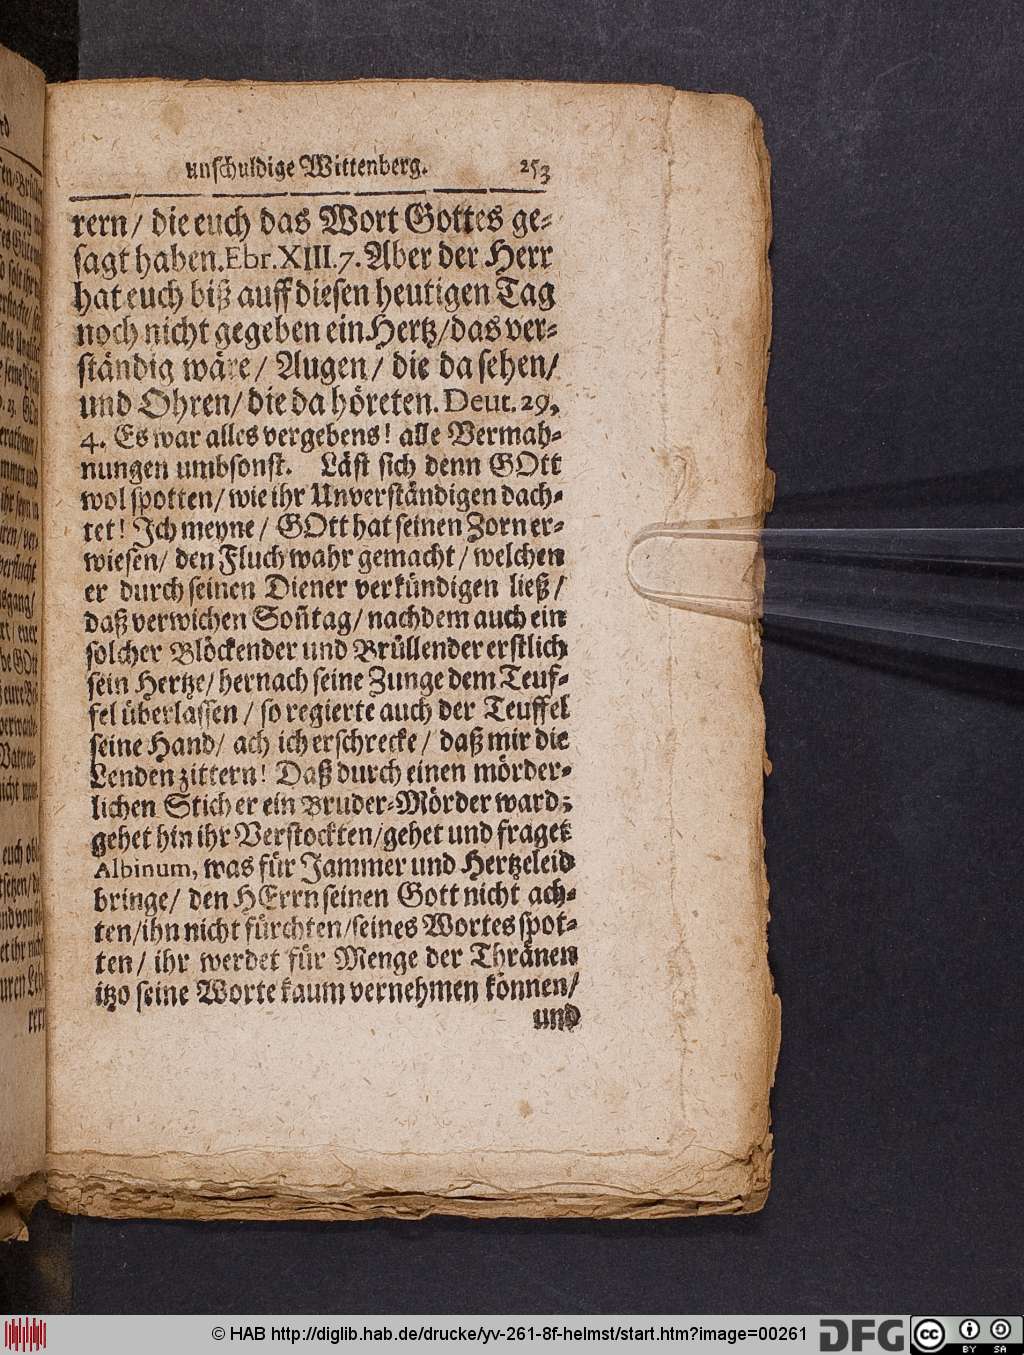 unschuldige Wittenberg. 253
rern/ die euch das Wort Gottes ge-
sagt haben. Ebr. XIII. 7. Aber der Herr
hat euch biß auff diesen heutigen Tag
noch nicht gegeben ein Hertz/ das ver-
ständig wäre/ Augen/ die da sehen/
und Ohren/ die da höreten. Deut. 29,
4. Es war alles vergebens! alle Vermah-
nungen umbsonst. Läst sich denn GOtt
wol spotten/ wie ihr Unverständigen dach-
tet! Jch meyne/ GOtt hat seinen Zorn er-
wiesen/ den Fluch wahr gemacht/ welchen
er durch seinen Diener verkündigen ließ/
daß verwichen Soñtag/ nachdem auch ein
solcher Blöckender und Brüllender erstlich
sein Hertze/ hernach seine Zunge dem Teuf-
fel überlassen/ so regierte auch der Teuffel
seine Hand/ ach ich erschrecke/ daß mir die
Lenden zittern! Daß durch einen mörder-
lichen Stich er ein Bruder-Mörder ward;
gehet hin ihr Verstockten/ gehet und fraget
Albinum, was für Jammer und Hertzeleid
bringe/ den HErrn seinen Gott nicht ach-
ten/ ihn nicht fürchten/ seines Wortes spot-
ten/ ihr werdet für Menge der Thränen
itzo seine Worte kaum vernehmen können/
und
© HAB http://diglib.hab.de/drucke/yv-261-8f-helmst/start.htm?image=00261
DFG
CC BY SA